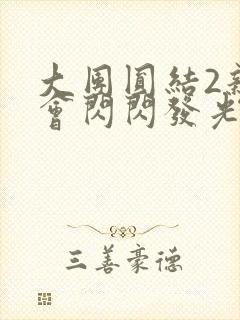 大團圓結2新
會閃閃發光
三善豪德